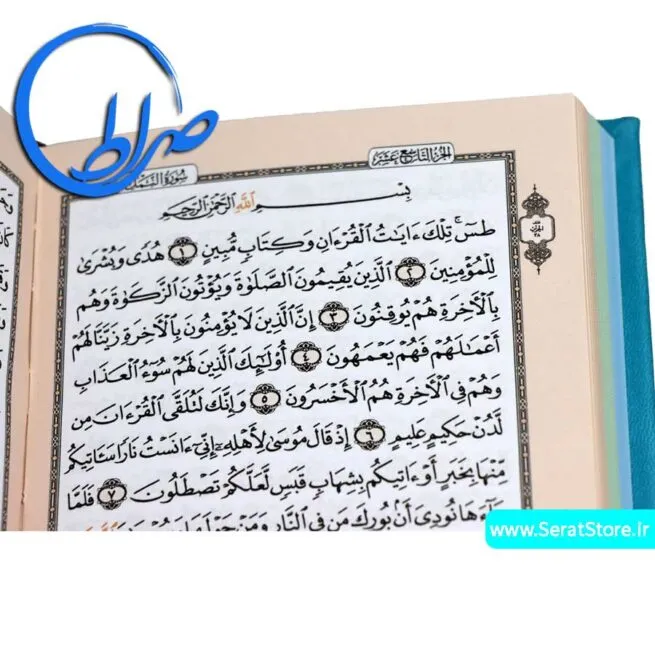 صراط
الجزء التاسع عشر
سورة النمل
بسم الله الرحمن الرحيم
طسٓ ۚ تِلْكَ ءَايَٰتُ ٱلْقُرْءَانِ وَكِتَابٍ مُّبِينٍ ١ هُدًى وَبُشْرَىٰ
لِلْمُؤْمِنِينَ ٢ ٱلَّذِينَ يُقِيمُونَ ٱلصَّلَوٰةَ وَيُؤْتُونَ ٱلزَّكَوٰةَ وَهُم
بِٱلْأَخِرَةِ هُمْ يُوقِنُونَ ٣ إِنَّ ٱلَّذِينَ لَا يُؤْمِنُونَ بِٱلْأَخِرَةِ زَيَّنَّا لَهُمْ
أَعْمَٰلَهُمْ فَهُمْ يَعْمَهُونَ ٤ أُوْلَٰٓئِكَ ٱلَّذِينَ لَهُمْ سُوٓءُ ٱلْعَذَابِ
وَهُمْ فِي ٱلْأَخِرَةِ هُمُ ٱلْأَخْسَرُونَ ٥ وَإِنَّكَ لَتُلَقَّى ٱلْقُرْءَانَ مِن
لَّدُنْ حَكِيمٍ عَلِيمٍ ٦ إِذْ قَالَ مُوسَىٰ لِأَهْلِهِۦٓ إِنِّيٓ ءَانَسْتُ نَارًا سَـَٔاتِيكُم
مِّنْهَا بِخَبَرٍ أَوْ ءَاتِيكُم بِشِهَابٍ قَبَسٍ لَّعَلَّكُمْ تَصْطَلُونَ ٧ فَلَمَّا
جَآءَهَا نُودِيَ أَنۢ بُورِكَ مَن فِي ٱلنَّارِ وَمَنْ حَوْلَهَا
www.SeratStore.ir